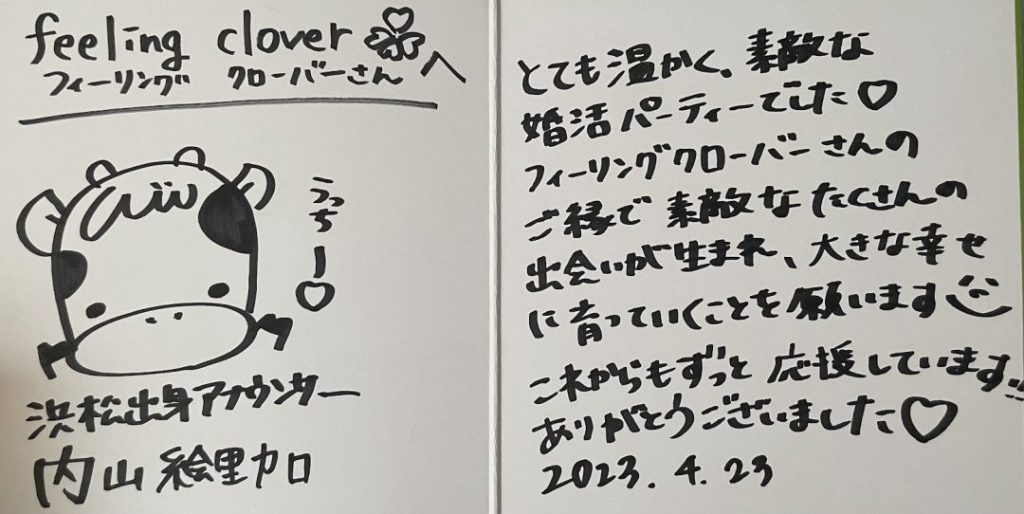 feeling clover へ
フィーリング クローバーさん
うっちー♡
浜松出身アナウンサー
内山絵里加
とても温かく、素敵な
婚活パーティーでした♡
フィーリングクローバーさんの
ご縁で素敵なたくさんの
出会いが生まれ、大きな幸せ
に育っていくことを願います
これからもずっと応援しています
ありがとうございました♡
2023.4.23